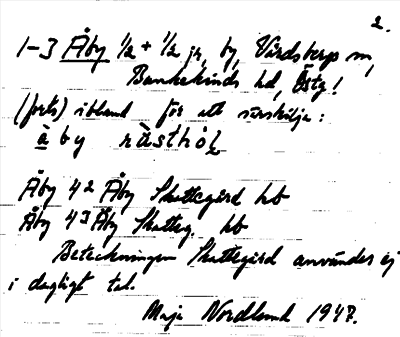 2.
1-3 Åby 1/2 + 1/2 jr, by, Vårdsbergs sn,
Bankekinds hd, Östg!
(forts) ibland för att särskilja:
åby råsthòl
Åby 4 2 Åby Skattegård hb
Åby 4 3 Åby Skatteg. hb
Beteckningen Skattegård användes ej
i dagligt tal.
Maja Nordlund 1947.